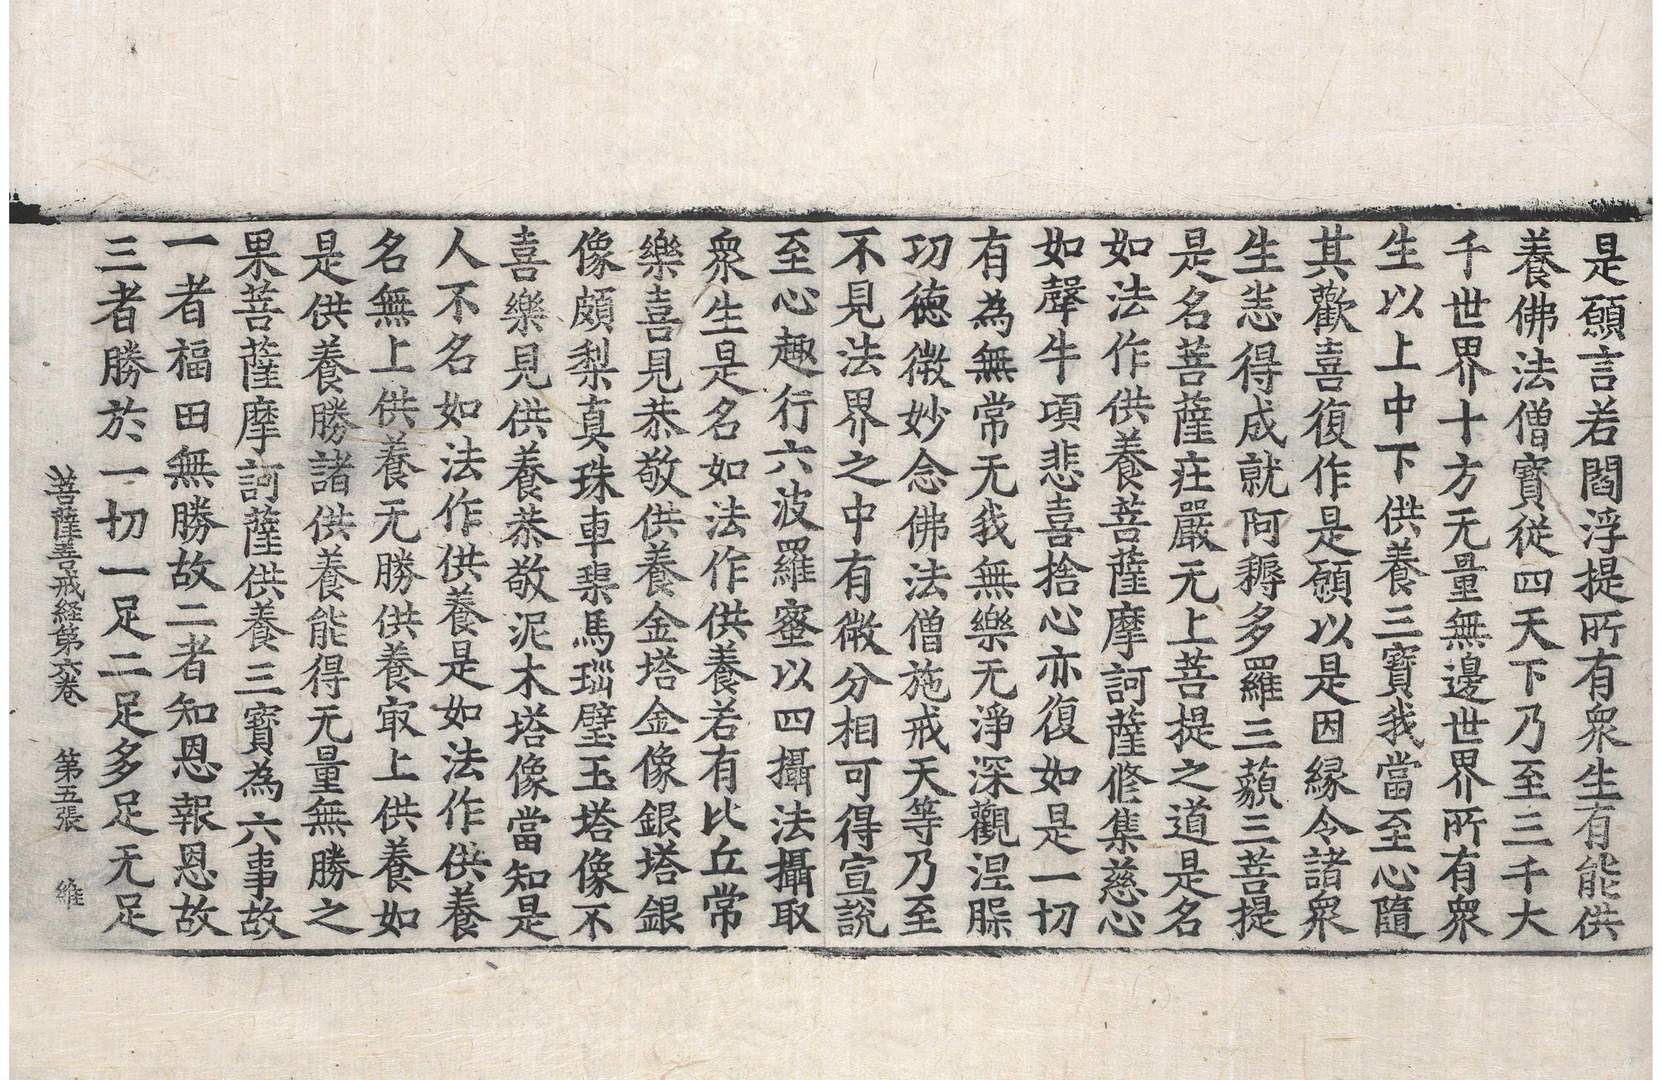 是願言若閻浮提所有衆生有能供
養佛法僧寶從四天下乃至三千大
千世界十方无量無邊世界所有衆
生以上中下供養三寶我當至心隨
其歡喜復作是願以是因縁令諸衆
生悉得成就阿耨多羅三藐三菩提
是名菩薩莊嚴无上菩提之道是名
如法作供養菩薩摩訶薩修集慈心
如聲牛頃悲喜捨心亦復如是一切
有為無常无我無樂无淨深觀涅槃
功徳微妙念佛法僧施戒天等乃至
不見法界之中有微分相可得宣説
至心趣行六波羅蜜以四攝法攝取
衆生是名如法作供養若有比丘常
樂喜見恭敬供養金塔金像銀塔銀
像頗梨真珠車𤦲馬瑙璧玉塔像不
喜樂見供養恭敬泥木塔像當知是
人不名如法作供養是如法作供養
名無上供養无勝供養㝡上供養如
是供養勝諸供養能得无量無勝之
果菩薩摩訶薩供養三寶為六事故
一者福田無勝故二者知恩報恩故
三者勝於一切一足二足多足无足
菩薩善戒経第六卷　第五張　維